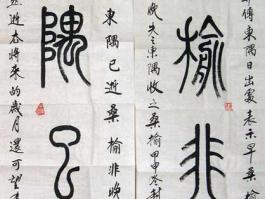 東隅日出處表示早桑榆
榆非
晚失之東隅收之桑榆甲申冬
東隅已逝桑榆非晚
隅已
逝將來的歲月還可望